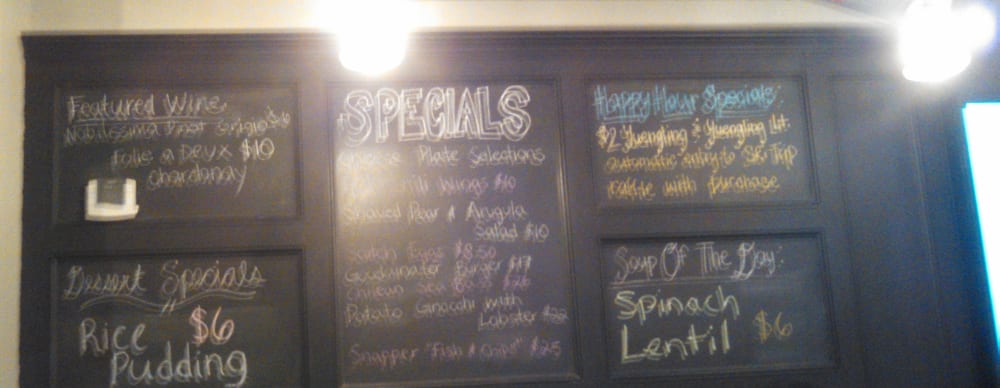 Featured Wine
Nobilissima Pinot Grigio $6
Folie a Deux $10
Chardonnay
Dessert Specials
Rice $6
Pudding
SPECIALS
Cheese Plate Selections
Chili Wings $10
Shaved Pear & Arugula
Salad $10
Scotch Eggs $8.50
Goodwater Burger $17
Chilean Sea Bass $26
Potato Gnocchi with
Lobster $22
Snapper "Fish & Chips" $25
Happy Hour Specials:
$2 Yuengling & Yuengling Lit.
automatic entry to Ski Trip
raffle with purchase
Soup Of The Day:
Spinach
Lentil $6